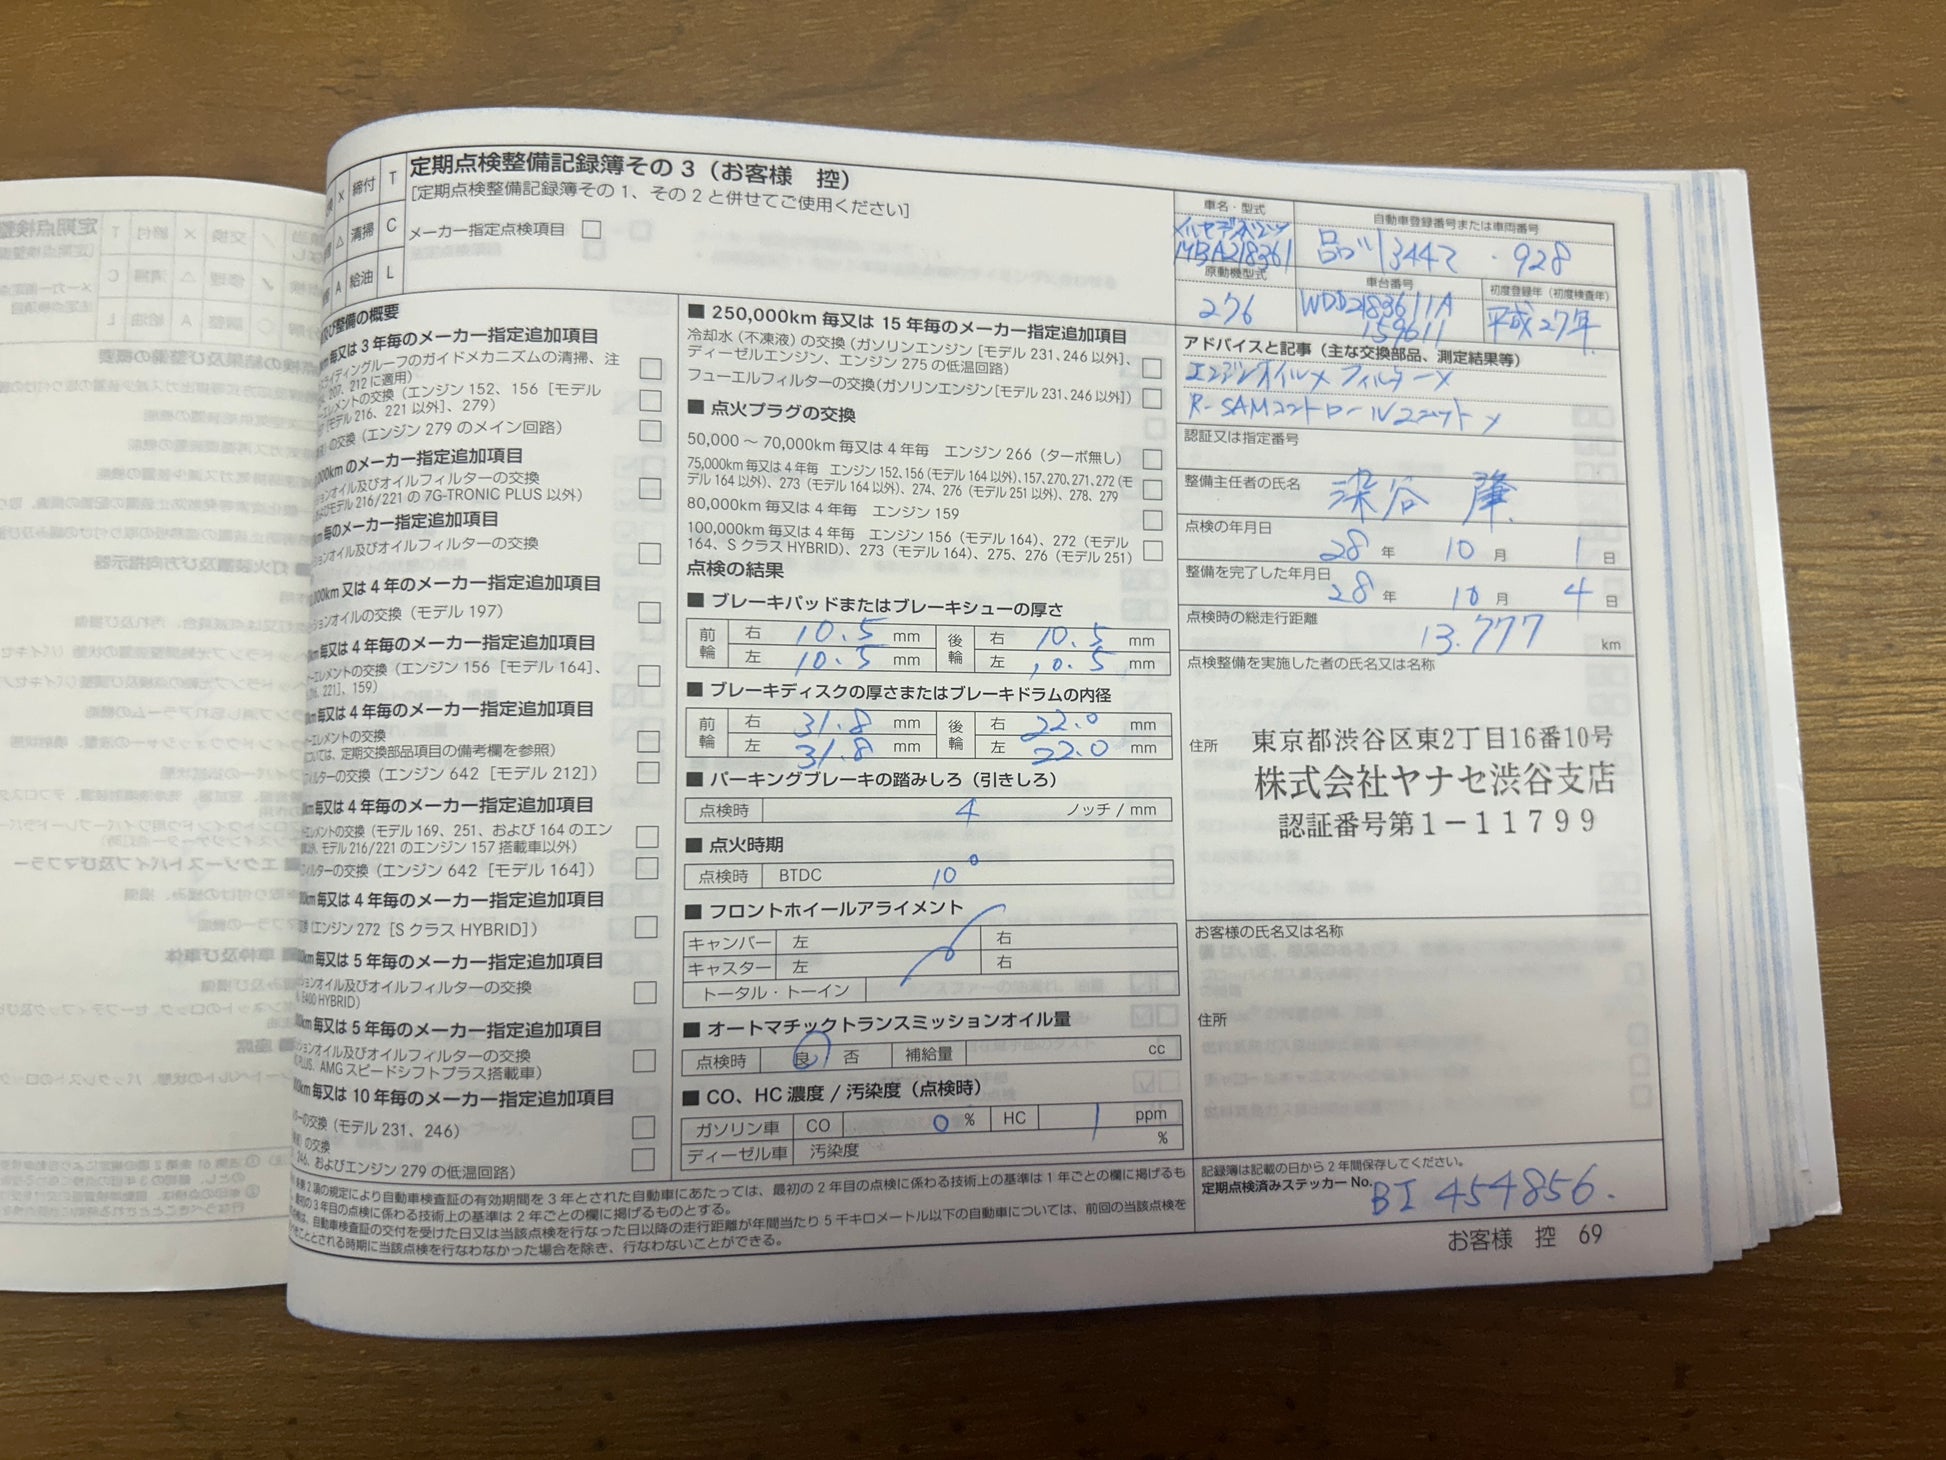 定期点検整備記録簿その3（お客様　控）
[定期点検整備記録簿その1、その2と併せてご使用ください]
メーカー指定点検項目 □
X 締付 T
△ 清掃 C
A 給油 L
及び整備の概要
毎又は3年毎のメーカー指定追加項目
ライディングルーフのガイドメカニズムの清掃、注
207、212に適用)
ーエレメントの交換（エンジン152、156［モデル
［モデル216、221以外］、279）
の交換（エンジン279のメイン回路）
kmのメーカー指定追加項目
ションオイル及びオイルフィルターの交換
およびモデル216/221の7G-TRONIC PLUS以外）
毎のメーカー指定追加項目
ションオイル及びオイルフィルターの交換
000km又は4年毎のメーカー指定追加項目
ションオイルの交換（モデル197）
km毎又は4年毎のメーカー指定追加項目
ーエレメントの交換（エンジン156［モデル164］、
221］、159）
km毎又は4年毎のメーカー指定追加項目
ーエレメントの交換
については、定期交換部品項目の備考欄を参照）
フィルターの交換（エンジン642［モデル212］）
km毎又は4年毎のメーカー指定追加項目
エレメントの交換（モデル169、251、および164のエン
以外、モデル216/221のエンジン157搭載車以外）
フィルターの交換（エンジン642［モデル164］）
00km毎又は4年毎のメーカー指定追加項目
（エンジン272［SクラスHYBRID］）
00km毎又は5年毎のメーカー指定追加項目
ションオイル及びオイルフィルターの交換
E400 HYBRID）
00km毎又は5年毎のメーカー指定追加項目
ションオイル及びオイルフィルターの交換
PLUS、AMGスピードシフトプラス搭載車）
00km毎又は10年毎のメーカー指定追加項目
ーの交換（モデル231、246）
の交換
246、およびエンジン279の低温回路）
■ 250,000km毎又は15年毎のメーカー指定追加項目
冷却水（不凍液）の交換（ガソリンエンジン［モデル231、246以外］、
ディーゼルエンジン、エンジン275の低温回路）
フューエルフィルターの交換（ガソリンエンジン［モデル231、246以外］）
■ 点火プラグの交換
50,000～70,000km毎又は4年毎　エンジン266（ターボ無し）
75,000km毎又は4年毎　エンジン152、156（モデル164以外）、157、270、271、272（モ
デル164以外）、273（モデル164以外）、274、276（モデル251以外）、278、279
80,000km毎又は4年毎　エンジン159
100,000km毎又は4年毎　エンジン156（モデル164）、272（モデル
164、SクラスHYBRID）、273（モデル164）、275、276（モデル251）
点検の結果
■ ブレーキパッドまたはブレーキシューの厚さ
前輪 右 10.5 mm 後輪 右 10.5 mm
左 10.5 mm 左 10.5 mm
■ ブレーキディスクの厚さまたはブレーキドラムの内径
前輪 右 31.8 mm 後輪 右 22.0 mm
左 31.8 mm 左 22.0 mm
■ パーキングブレーキの踏みしろ（引きしろ）
点検時 4 ノッチ / mm
■ 点火時期
点検時 BTDC 10°
■ フロントホイールアライメント
キャンバー 左 右
キャスター 左 右
トータル・トーイン
■ オートマチックトランスミッションオイル量
点検時 良 否 補給量 cc
■ CO、HC濃度 / 汚染度（点検時）
ガソリン車 CO 0 % HC 1 ppm
ディーゼル車 汚染度 %
車名・型式
メルセデスベンツ
MBA218361
自動車登録番号または車両番号
品川344 928
原動機型式
276
車台番号
WDD2183611A
159611
初度登録年（初度検査年）
平成27年
アドバイスと記事（主な交換部品、測定結果等）
エンジンオイルメ フィルターメ
R-SAMコントロールユニットメ
認証又は指定番号
整備主任者の氏名 染谷 肇
点検の年月日
28 年 10 月 1 日
整備を完了した年月日
28 年 10 月 4 日
点検時の総走行距離
13.777 km
点検整備を実施した者の氏名又は名称
住所 東京都渋谷区東2丁目16番10号
株式会社ヤナセ渋谷支店
認証番号第1－11799
お客様の氏名又は名称
住所
記録簿は記載の日から2年間保存してください。
定期点検済みステッカーNo. BI 454856.
第2項の規定により自動車検査証の有効期間を3年とされた自動車にあたっては、最初の2年目の点検に係わる技術上の基準は1年ごとの欄に掲げるも
最初の3年目の点検に係わる技術上の基準は2年ごとの欄に掲げるものとする。
は、自動車検査証の交付を受けた日又は当該点検を行なった日以降の走行距離が年間当たり5千キロメートル以下の自動車については、前回の当該点検を
こととされる時期に当該点検を行なわなかった場合を除き、行なわないことができる。
お客様　控　69